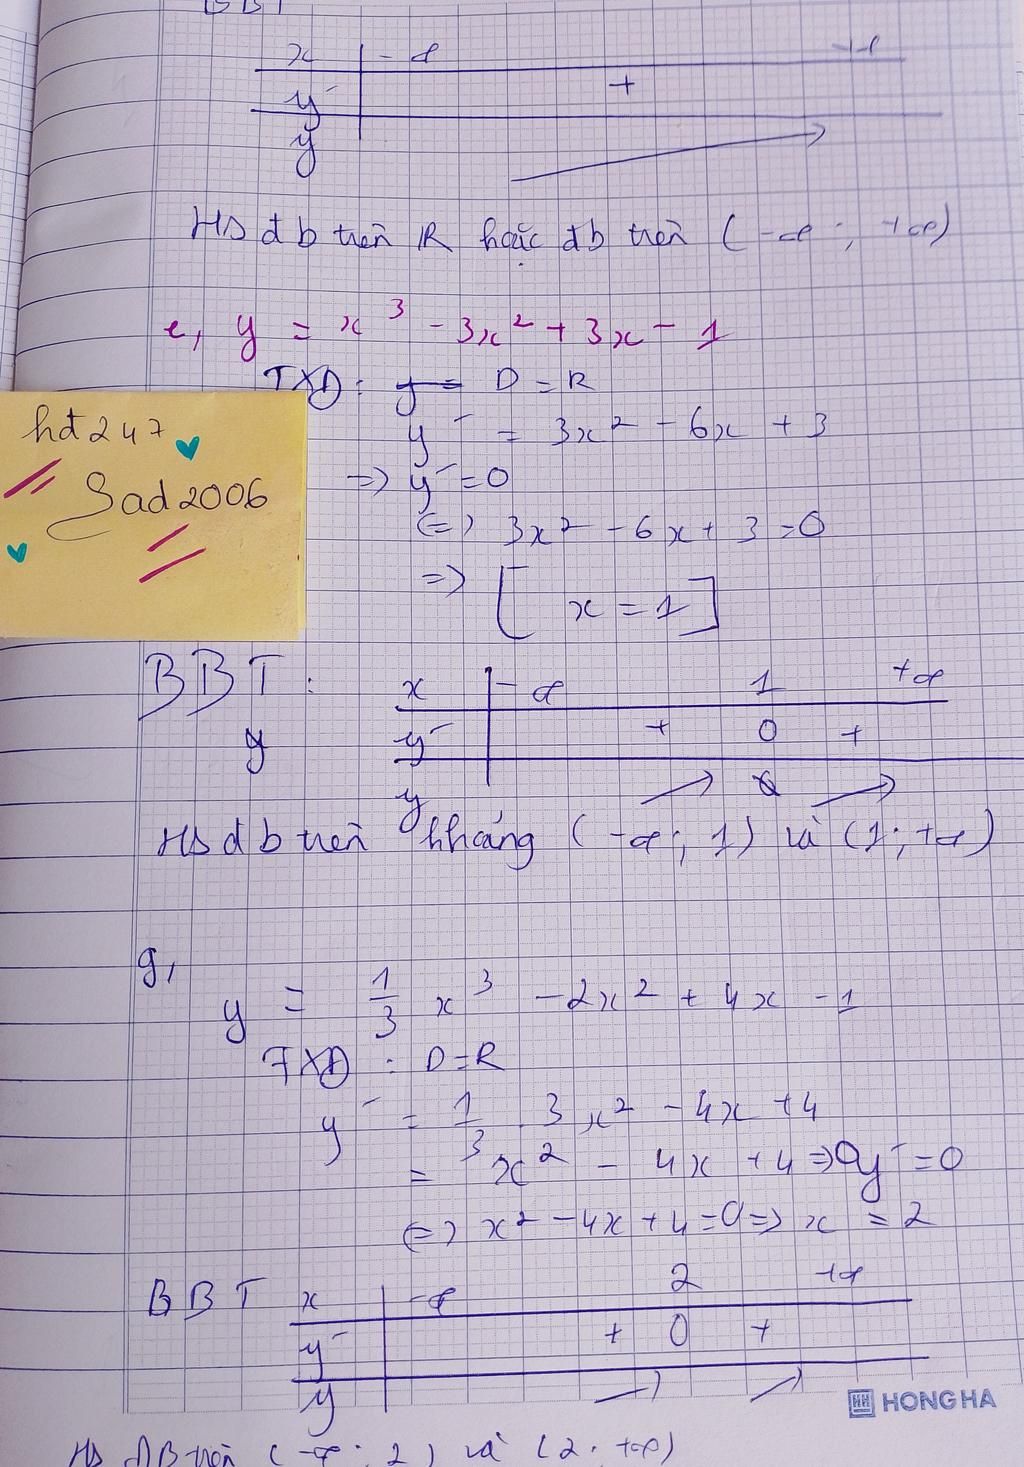 BBT
x -∞ +∞
y' +
y
HS đb trên R hoặc đb trên (-∞; +∞)
e, y = x³ - 3x² + 3x - 1
TXĐ: D = R
y' = 3x² - 6x + 3
=> y' = 0
(=) 3x² - 6x + 3 = 0
=> [ x = 1 ]
hđ247
Sad2006
BBT: x -∞ 1 +∞
y y' + 0 +
y
HS đb trên khoảng (-∞; 1) và (1; +∞)
g,
y = 1/3 x³ - 2x² + 4x - 1
TXĐ: D = R
y' = 1/3 . 3x² - 4x + 4
= x² - 4x + 4 => y' = 0
(=) x² - 4x + 4 = 0 => x = 2
BBT x -∞ 2 +∞
y' + 0 +
y
HONG HA
HS ĐB trên (-∞; 2) và (2; +∞)